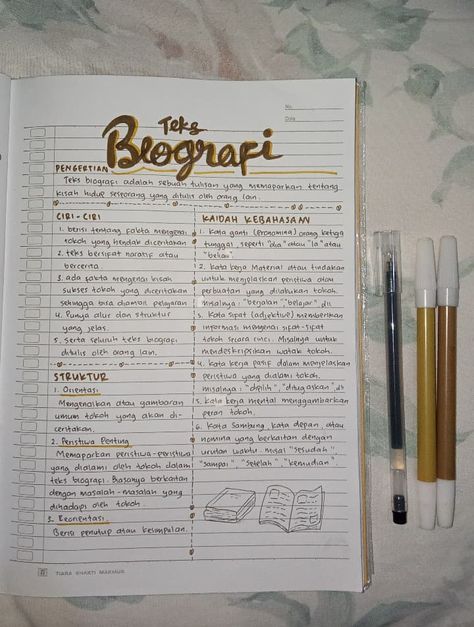 No.
Date
Teks
Biografi
PENGERTIAN
Teks biografi adalah sebuah tulisan yang memaparkan tentang
kisah hidup seseorang yang ditulis oleh orang lain.
CIRI-CIRI
1. berisi tentang fakta mengenai
tokoh yang hendak diceritakan
2. teks bersifat naratif atau
bercerita.
3. ada fakta mengenai kisah
sukses tokoh yang diceritakan
sehingga bisa diambil pelajaran
4. Punya alur dan struktur
yang jelas.
5. Serta seluruh teks biografi
ditulis oleh orang lain.
STRUKTUR
1. Orientasi
Mengenalkan atau gambaran
umum tokoh yang akan di-
ceritakan.
2. Peristiwa Penting
Memaparkan peristiwa-peristiwa
yang dialami oleh tokoh dalam
teks biografi. Biasanya berkaitan
dengan masalah-masalah yang
dihadapi oleh tokoh.
3. Reorientasi
Berisi penutup atau kesimpulan.
KAIDAH KEBAHASAAN
1. Kata ganti (pronomina) orang ketiga
tunggal, seperti "dia" atau "Ia" atau
"beliau".
2. kata kerja Material atau tindakan
untuk menjelaskan peristiwa atau
perbuatan yang dilakukan tokoh
misalnya: "berjalan", "belajar" dll
3. Kata Sifat (adjektive) memberikan
informasi mengenai sifat-sifat
tokoh secara rinci. Misalnya untuk
mendeskripsikan watak tokoh.
4. kata kerja pasif dalam menjelaskan
peristiwa yang dialami tokoh.
misalnya: "dipilih", "ditugaskan", dll
5. kata kerja mental menggambarkan
peran tokoh.
6. Kata Sambung, kata depan, atau
nomina yang berkaitan dengan
urutan waktu. misal "sesudah",
"sampai", "setelah", "kemudian".
TIARA SHAKTI MAKMUR